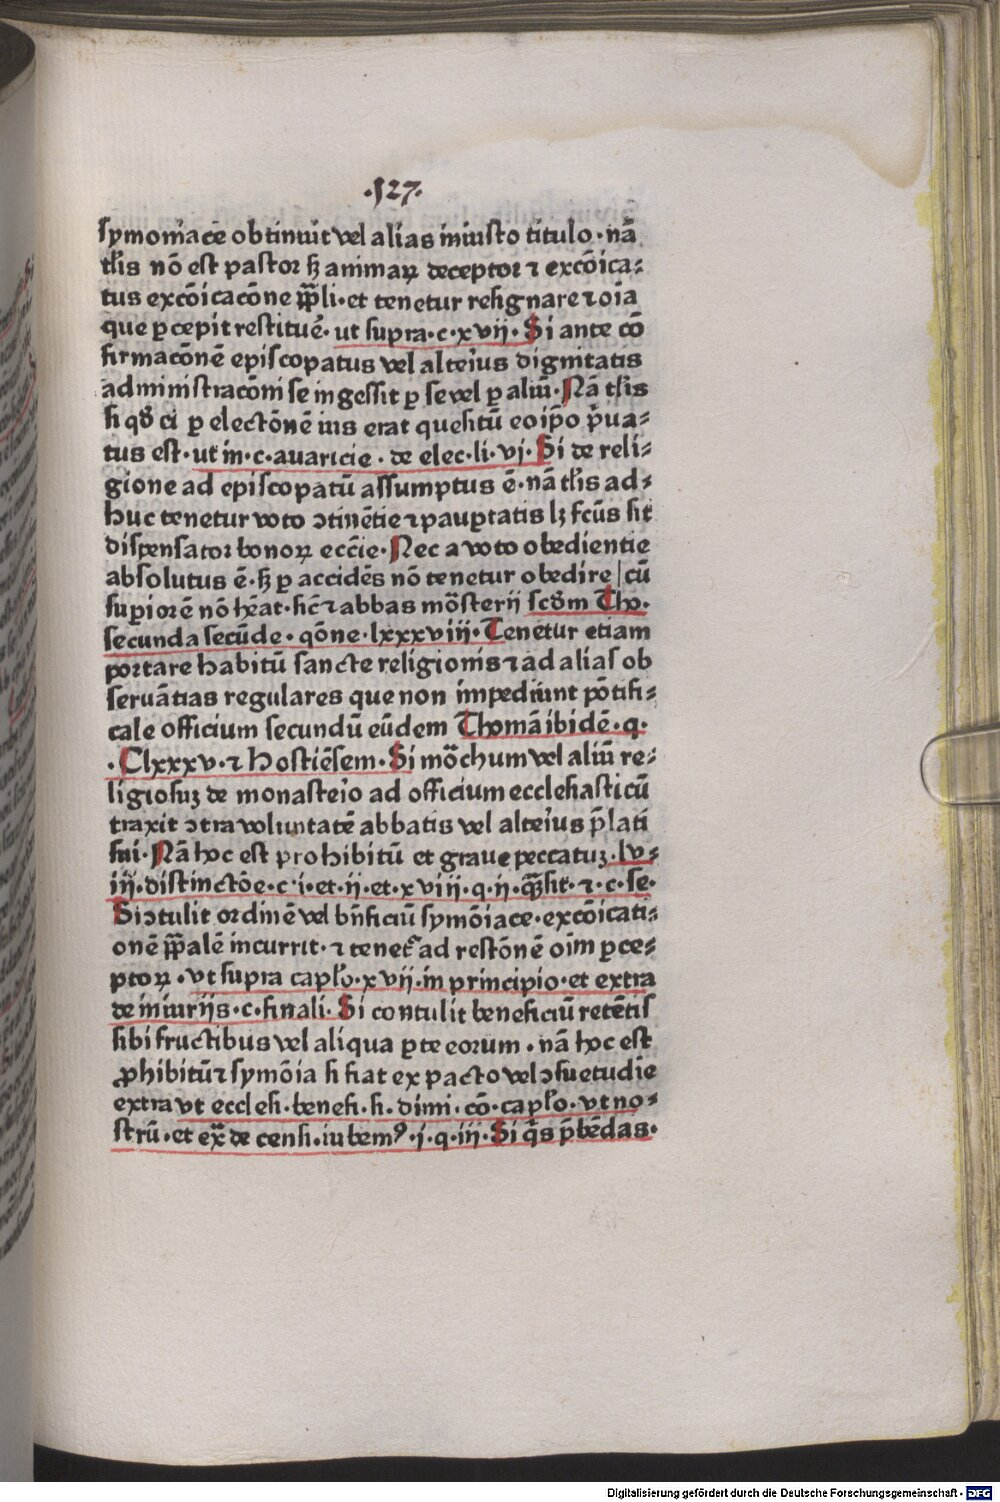 ·527·
symoniace obtinuit vel alias iniusto titulo·nā
tl̄is nō est pastor ſꝫ animaꝝ deceptor ⁊ excōica⸗
tus excōicacōne pp̄li·et tenetur resignare ⁊ oīa
que ꝑcepit restituē·ut supra·c·xvii·Si ante cō
firmacōnē episcopatus vel alteri̾us dignitatis
administracōni se ingessit ꝑ se vel ꝑ aliū·Nā tl̄is
si qd̄ ei ꝑ electōnē ius erat quesitū eo ip̄o p̄ua⸗
tus est·ut in·c·avaricie·de elec·li·vj·Si de reli⸗
gione ad episcopatū assumptus ē·nā tl̄is ad⸗
huc tenetur voto ↄtinētie ⁊ pauꝑtatis lꝫ fc̄us sit
dispensator bonoꝝ ecc̄ie·Nec a voto obedientie
absolutus ē·ſꝫ ꝑ accidēs nō tenetur obedire | cū
suꝑiorē nō hēat·sic̄ ⁊ abbas mōsterij scd̄m Tho·
secunda secūde·qōne·lxxxviii·Tenetur etiam
portare habitū sancte religionis ⁊ ad alias ob
servātias regulares que non impediunt pōtifi⸗
cale officium secundū eūdem Thomā ibidē·q·
·Clxxxv·⁊ Hostiēsem·Si mōchum vel aliū re⸗
ligiosuꝫ de monasteri̾o ad officium ecclesiasticū
traxit ↄtra voluntatē abbatis vel alteri̾us p̄lati
sui·Nā hoc est prohibitū et grave peccatuꝫ·lv⸗
iij·distinctōe·c·i·et·ii·et·xviii·q·ii·qꝫ̄ sit·⁊·c·se·
Si ↄtulit ordinē vel bn̄ficiū symōiace·excōicati⸗
onē pp̄alē incurrit·⁊ tenet᷑ ad restōnē oīm ꝑce⸗
ptoꝝ·ut supra capl̄o·xvii·in principio·et extra
de iniurijs·c·finali·Si contulit beneficiū retētis
sibi fructibus vel aliqua ꝑte eorum·nā hoc est
ꝓhibitū ⁊ symōia si fiat ex pacto vel ↄsuetudīe
extra vt ecclesi·benefi·si·dimi·cō·capl̄o·vt no⸗
strū·et ex̄ de censi·iubemꝰ·i·q·iii·Si q̄s p̄bēdas·
Digitalisierung gefördert durch die Deutsche Forschungsgemeinschaft - DFG